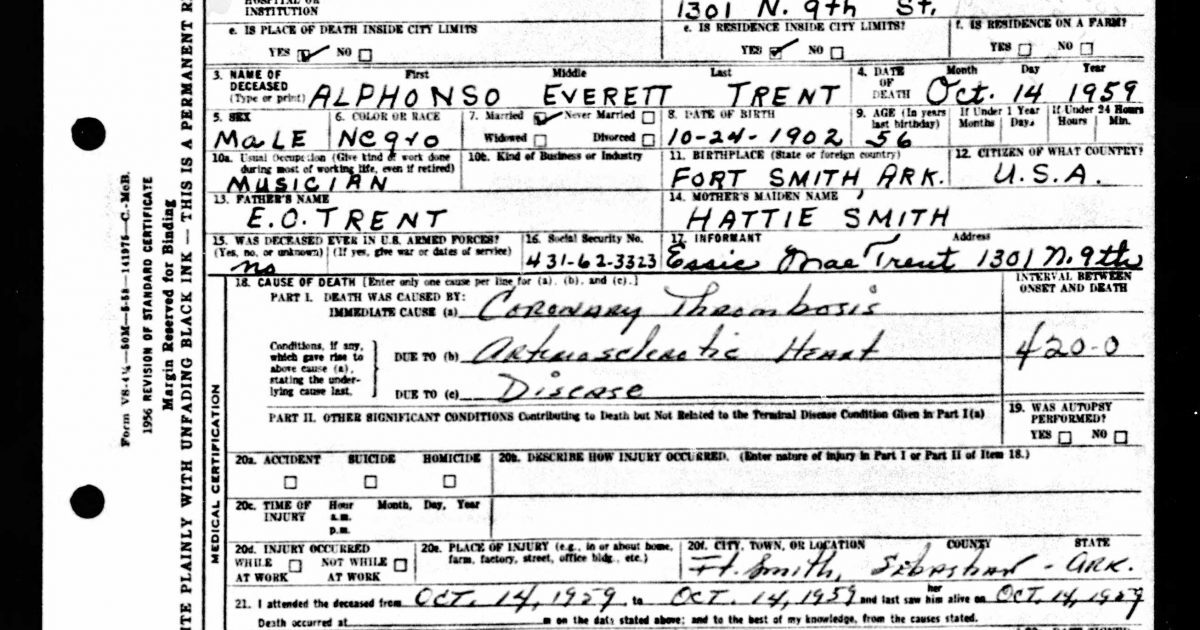 HOSPITAL OR
INSTITUTION
1301 N. 9th St.
e. IS PLACE OF DEATH INSIDE CITY LIMITS
YES NO
e. IS RESIDENCE INSIDE CITY LIMITS?
YES NO
f. IS RESIDENCE ON A FARM?
YES NO
3. NAME OF DECEASED
(Type or print)
First Middle Last
ALPHONSO EVERETT TRENT
4. DATE OF DEATH
Month Day Year
Oct. 14 1959
5. SEX
MaLE
6. COLOR OR RACE
Negro
7. Married Never Married
Widowed Divorced
8. DATE OF BIRTH
10-24-1902
9. AGE (In years last birthday)
56
If Under 1 Year
Months Days
If Under 24 Hours
Hours Min.
10a. Usual Occupation (Give kind of work done
during most of working life, even if retired)
MUSICIAN
10b. Kind of Business or Industry
11. BIRTHPLACE (State or foreign country)
FORT SMITH, ARK.
12. CITIZEN OF WHAT COUNTRY?
U.S.A.
13. FATHER'S NAME
E.O. TRENT
14. MOTHER'S MAIDEN NAME
HATTIE SMITH
15. WAS DECEASED EVER IN U.S. ARMED FORCES?
(Yes, no, or unknown) (If yes, give war or dates of service)
no
16. Social Security No.
431-62-3323
17. INFORMANT Address
Essie Mae Trent 1301 N. 9th
18. CAUSE OF DEATH [Enter only one cause per line for (a), (b), and (c).]
INTERVAL BETWEEN
ONSET AND DEATH
PART I. DEATH WAS CAUSED BY:
IMMEDIATE CAUSE (a) Coronary Thrombosis
Conditions, if any,
which gave rise to
above cause (a),
stating the under-
lying cause last.
DUE TO (b) Arteriosclerotic Heart
420-0
DUE TO (c) Disease
PART II. OTHER SIGNIFICANT CONDITIONS Contributing to Death but Not Related to the Terminal Disease Condition Given in Part I(a)
19. WAS AUTOPSY
PERFORMED?
YES NO
20a. ACCIDENT SUICIDE HOMICIDE
20b. DESCRIBE HOW INJURY OCCURRED. (Enter nature of injury in Part I or Part II of Item 18.)
20c. TIME OF
INJURY
Hour Month, Day, Year
a.m.
p.m.
20d. INJURY OCCURRED
WHILE NOT WHILE
AT WORK AT WORK
20e. PLACE OF INJURY (e.g., in or about home,
farm, factory, street, office bldg., etc.)
20f. CITY, TOWN, OR LOCATION COUNTY STATE
Ft. Smith, Sebastian - ARK.
21. I attended the deceased from OCT. 14, 1959 to OCT. 14, 1959 and last saw her him alive on OCT. 14, 1959
Death occurred at m on the date stated above; and to the best of my knowledge, from the causes stated.
MEDICAL CERTIFICATION
ITE PLAINLY WITH UNFADING BLACK INK — THIS IS A PERMANENT R
Margin Reserved for Binding
1956 REVISION OF STANDARD CERTIFICATE
Form VS-4¼—50M—5-58—141975—C.-McB.